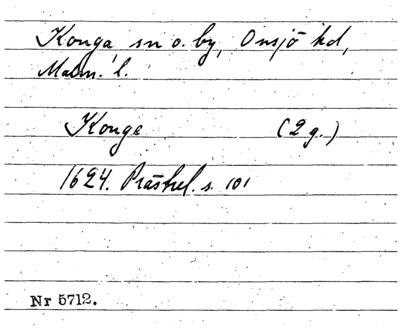 Konga sn o. by, Onsjö hd,
Malm. l.
Konge (2 g.)
1624. Prästrel. s. 101
Nr 5712.